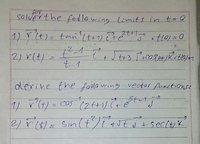 for
solve the following limits in t=0
1) r(t) = tan⁻¹(t+1) i + e^(2t+1) j
2) r(t) = t²-1/t-1 i + √t+3 j
derive the following vector functions
1) r(t) = cos (2t+1) i + e^(5t+1) j
2) r(t) = sin(t²) i + √t j + sec(t) k